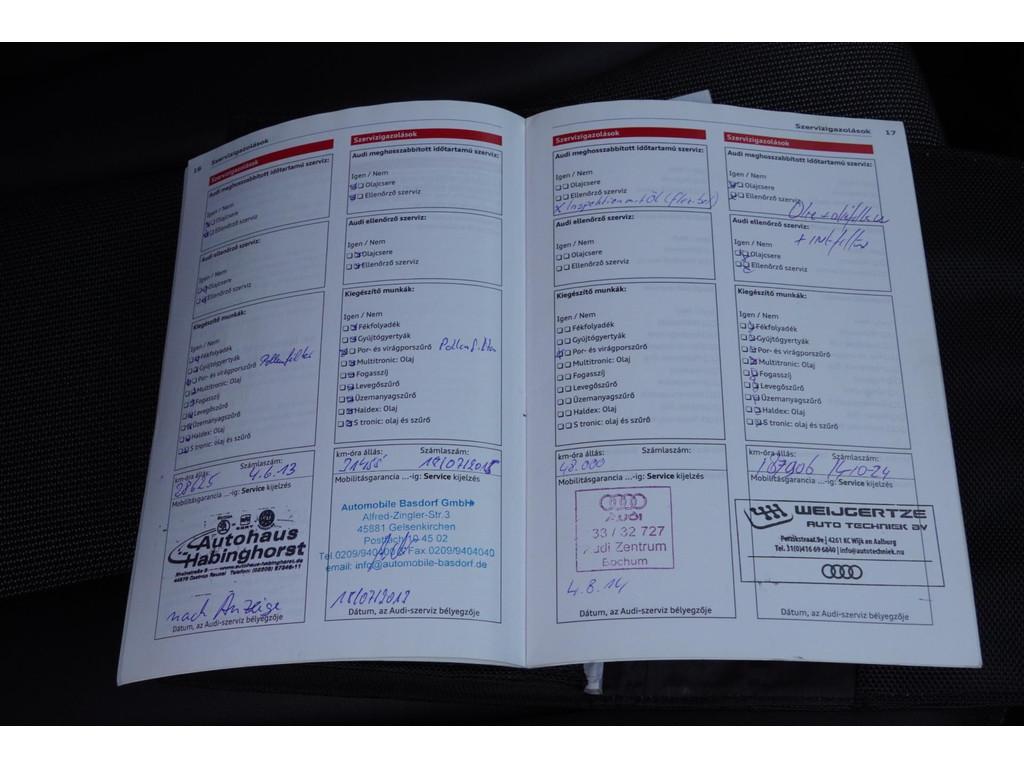 16 Szervizigazolások
Szervizigazolások
Audi meghosszabbított időtartamú szerviz:
Igen / Nem
Olajcsere
Ellenőrző szerviz
Audi ellenőrző szerviz:
Igen / Nem
Olajcsere
Ellenőrző szerviz
Kiegészítő munkák:
Igen / Nem
Fékfolyadék
Gyújtógyertyák
Por- és virágporszűrő Pollenfilter
Multitronic: Olaj
Fogasszíj
Levegőszűrő
Üzemanyagszűrő
Haldex: Olaj
S tronic: olaj és szűrő
km-óra állás: Számlaszám:
28625 4.6.13
Mobilitásgarancia ...-ig: Service kijelzés
Autohaus
Habinghorst
nach Anzeige
Dátum, az Audi-szerviz bélyegzője
Szervizigazolások
Audi meghosszabbított időtartamú szerviz:
Igen / Nem
Olajcsere
Ellenőrző szerviz
Audi ellenőrző szerviz:
Igen / Nem
Olajcsere
Ellenőrző szerviz
Kiegészítő munkák:
Igen / Nem
Fékfolyadék
Gyújtógyertyák
Por- és virágporszűrő
Multitronic: Olaj
Fogasszíj
Levegőszűrő
Üzemanyagszűrő
Haldex: Olaj
S tronic: olaj és szűrő
km-óra állás: Számlaszám:
Mobilitásgarancia ...-ig: Service kijelzés
Automobile Basdorf GmbH
Alfred-Zingler-Str.3
45881 Gelsenkirchen
Postfach 10 45 02
Tel.0209/940400 Fax.0209/9404040
email: info@automobile-basdorf.de
Dátum, az Audi-szerviz bélyegzője
Szervizigazolások
Audi meghosszabbított időtartamú szerviz:
Igen / Nem
Olajcsere
Ellenőrző szerviz
x Inspektion m. Öl
Audi ellenőrző szerviz:
Igen / Nem
Olajcsere
Ellenőrző szerviz
Kiegészítő munkák:
Igen / Nem
Fékfolyadék
Gyújtógyertyák
Por- és virágporszűrő
Multitronic: Olaj
Fogasszíj
Levegőszűrő
Üzemanyagszűrő
Haldex: Olaj
S tronic: olaj és szűrő
km-óra állás: Számlaszám:
48.000
Mobilitásgarancia ...-ig: Service kijelzés
Audi
33 / 32 727
Audi Zentrum
Bochum
4.8.14
Dátum, az Audi-szerviz bélyegzője
Szervizigazolások 17
Szervizigazolások
Audi meghosszabbított időtartamú szerviz:
Igen / Nem
Olajcsere
Ellenőrző szerviz
Audi ellenőrző szerviz:
Igen / Nem
Olajcsere
Ellenőrző szerviz
Kiegészítő munkák:
Igen / Nem
Fékfolyadék
Gyújtógyertyák
Por- és virágporszűrő
Multitronic: Olaj
Fogasszíj
Levegőszűrő
Üzemanyagszűrő
Haldex: Olaj
S tronic: olaj és szűrő
km-óra állás: Számlaszám:
187906 14-10-24
Mobilitásgarancia ...-ig: Service kijelzés
WEIJGERTZE
AUTO TECHNIEK BV
Perzikstraat.9e | 4261 KC Wijk en Aalburg
Tel. 31(0)416 69 6840 | info@autotechniek.nu
Dátum, az Audi-szerviz bélyegzője